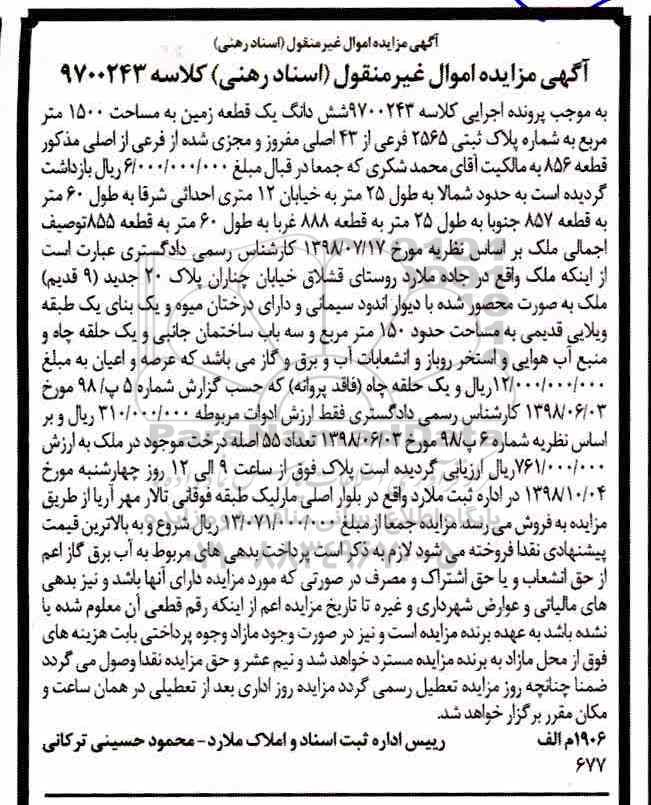 آگهی مزایده اموال غیرمنقول (اسناد رهنی)
آگهی مزایده اموال غیرمنقول (اسناد رهنی) کلاسه ۹۷۰۰۲۴۳
به موجب پرونده اجرایی کلاسه ۹۷۰۰۲۴۳شش دانگ یک قطعه زمین به مساحت ۱۵۰۰ متر
مربع به شماره پلاک ثبتی ۲۵۶۵ فرعی از ۴۳ اصلی مفروز و مجزی شده از فرعی از اصلی مذکور
قطعه ۸۵۶ به مالکیت آقای محمد شکری که جمعا در قبال مبلغ ۶/۰۰۰/۰۰۰/۰۰۰ ریال بازداشت
گردیده است به حدود شمالا به طول ۲۵ متر به خیابان ۱۲ متری احداثی شرقا به طول ۶۰ متر
به قطعه ۸۵۷ جنوبا به طول ۲۵ متر به قطعه ۸۸۸ غربا به طول ۶۰ متر به قطعه ۸۵۵توصیف
اجمالی ملک بر اساس نظریه مورخ ۱۳۹۸/۰۷/۱۷ کارشناس رسمی دادگستری عبارت است
از اینکه ملک واقع در جاده ملارد روستای قشلاق خیابان چناران پلاک ۲۰ جدید (۹ قدیم)
ملک به صورت محصور شده با دیوار اندود سیمانی و دارای درختان میوه و یک بنای یک طبقه
ویلایی قدیمی به مساحت حدود ۱۵۰ متر مربع و سه باب ساختمان جانبی و یک حلقه چاه و
منبع آب هوایی و استخر روباز و انشعابات آب و برق و گاز می باشد که عرصه و اعیان به مبلغ
۱۲/۰۰۰/۰۰۰/۰۰۰ریال و یک حلقه چاه (فاقد پروانه) که حسب گزارش شماره ۵ پ/ ۹۸ مورخ
۱۳۹۸/۰۶/۰۳ کارشناس رسمی دادگستری فقط ارزش ادوات مربوطه ۳۱۰/۰۰۰/۰۰۰ ریال و بر
اساس نظریه شماره ۶ پ/۹۸ مورخ ۱۳۹۸/۰۶/۰۳ تعداد ۵۵ اصله درخت موجود در ملک به ارزش
۷۶۱/۰۰۰/۰۰۰ریال ارزیابی گردیده است پلاک فوق از ساعت ۹ الی ۱۲ روز چهارشنبه مورخ
۱۳۹۸/۱۰/۰۴ در اداره ثبت ملارد واقع در بلوار اصلی مارلیک طبقه فوقانی تالار مهر آریا از طریق
مزایده به فروش می رسد. مزایده جمعا از مبلغ ۱۳/۰۷۱/۰۰۰/۰۰۰ ریال شروع و به بالاترین قیمت
پیشنهادی نقدا فروخته می شود لازم به ذکر است پرداخت بدهی های مربوط به آب برق گاز اعم
از حق انشعاب و یا حق اشتراک و مصرف در صورتی که مورد مزایده دارای آنها باشد و نیز بدهی
های مالیاتی و عوارض شهرداری و غیره تا تاریخ مزایده اعم از اینکه رقم قطعی آن معلوم شده یا
نشده باشد به عهده برنده مزایده است و نیز در صورت وجود مازاد وجوه پرداختی بابت هزینه های
فوق از محل مازاد به برنده مزایده مسترد خواهد شد و نیم عشر و حق مزایده نقدا وصول می گردد
ضمنا چنانچه روز مزایده تعطیل رسمی گردد مزایده روز اداری بعد از تعطیلی در همان ساعت و
مکان مقرر برگزار خواهد شد.
۱۹۰۶م الف رییس اداره ثبت اسناد و املاک ملارد - محمود حسینی ترکانی
۶۷۷
ParsNamadData